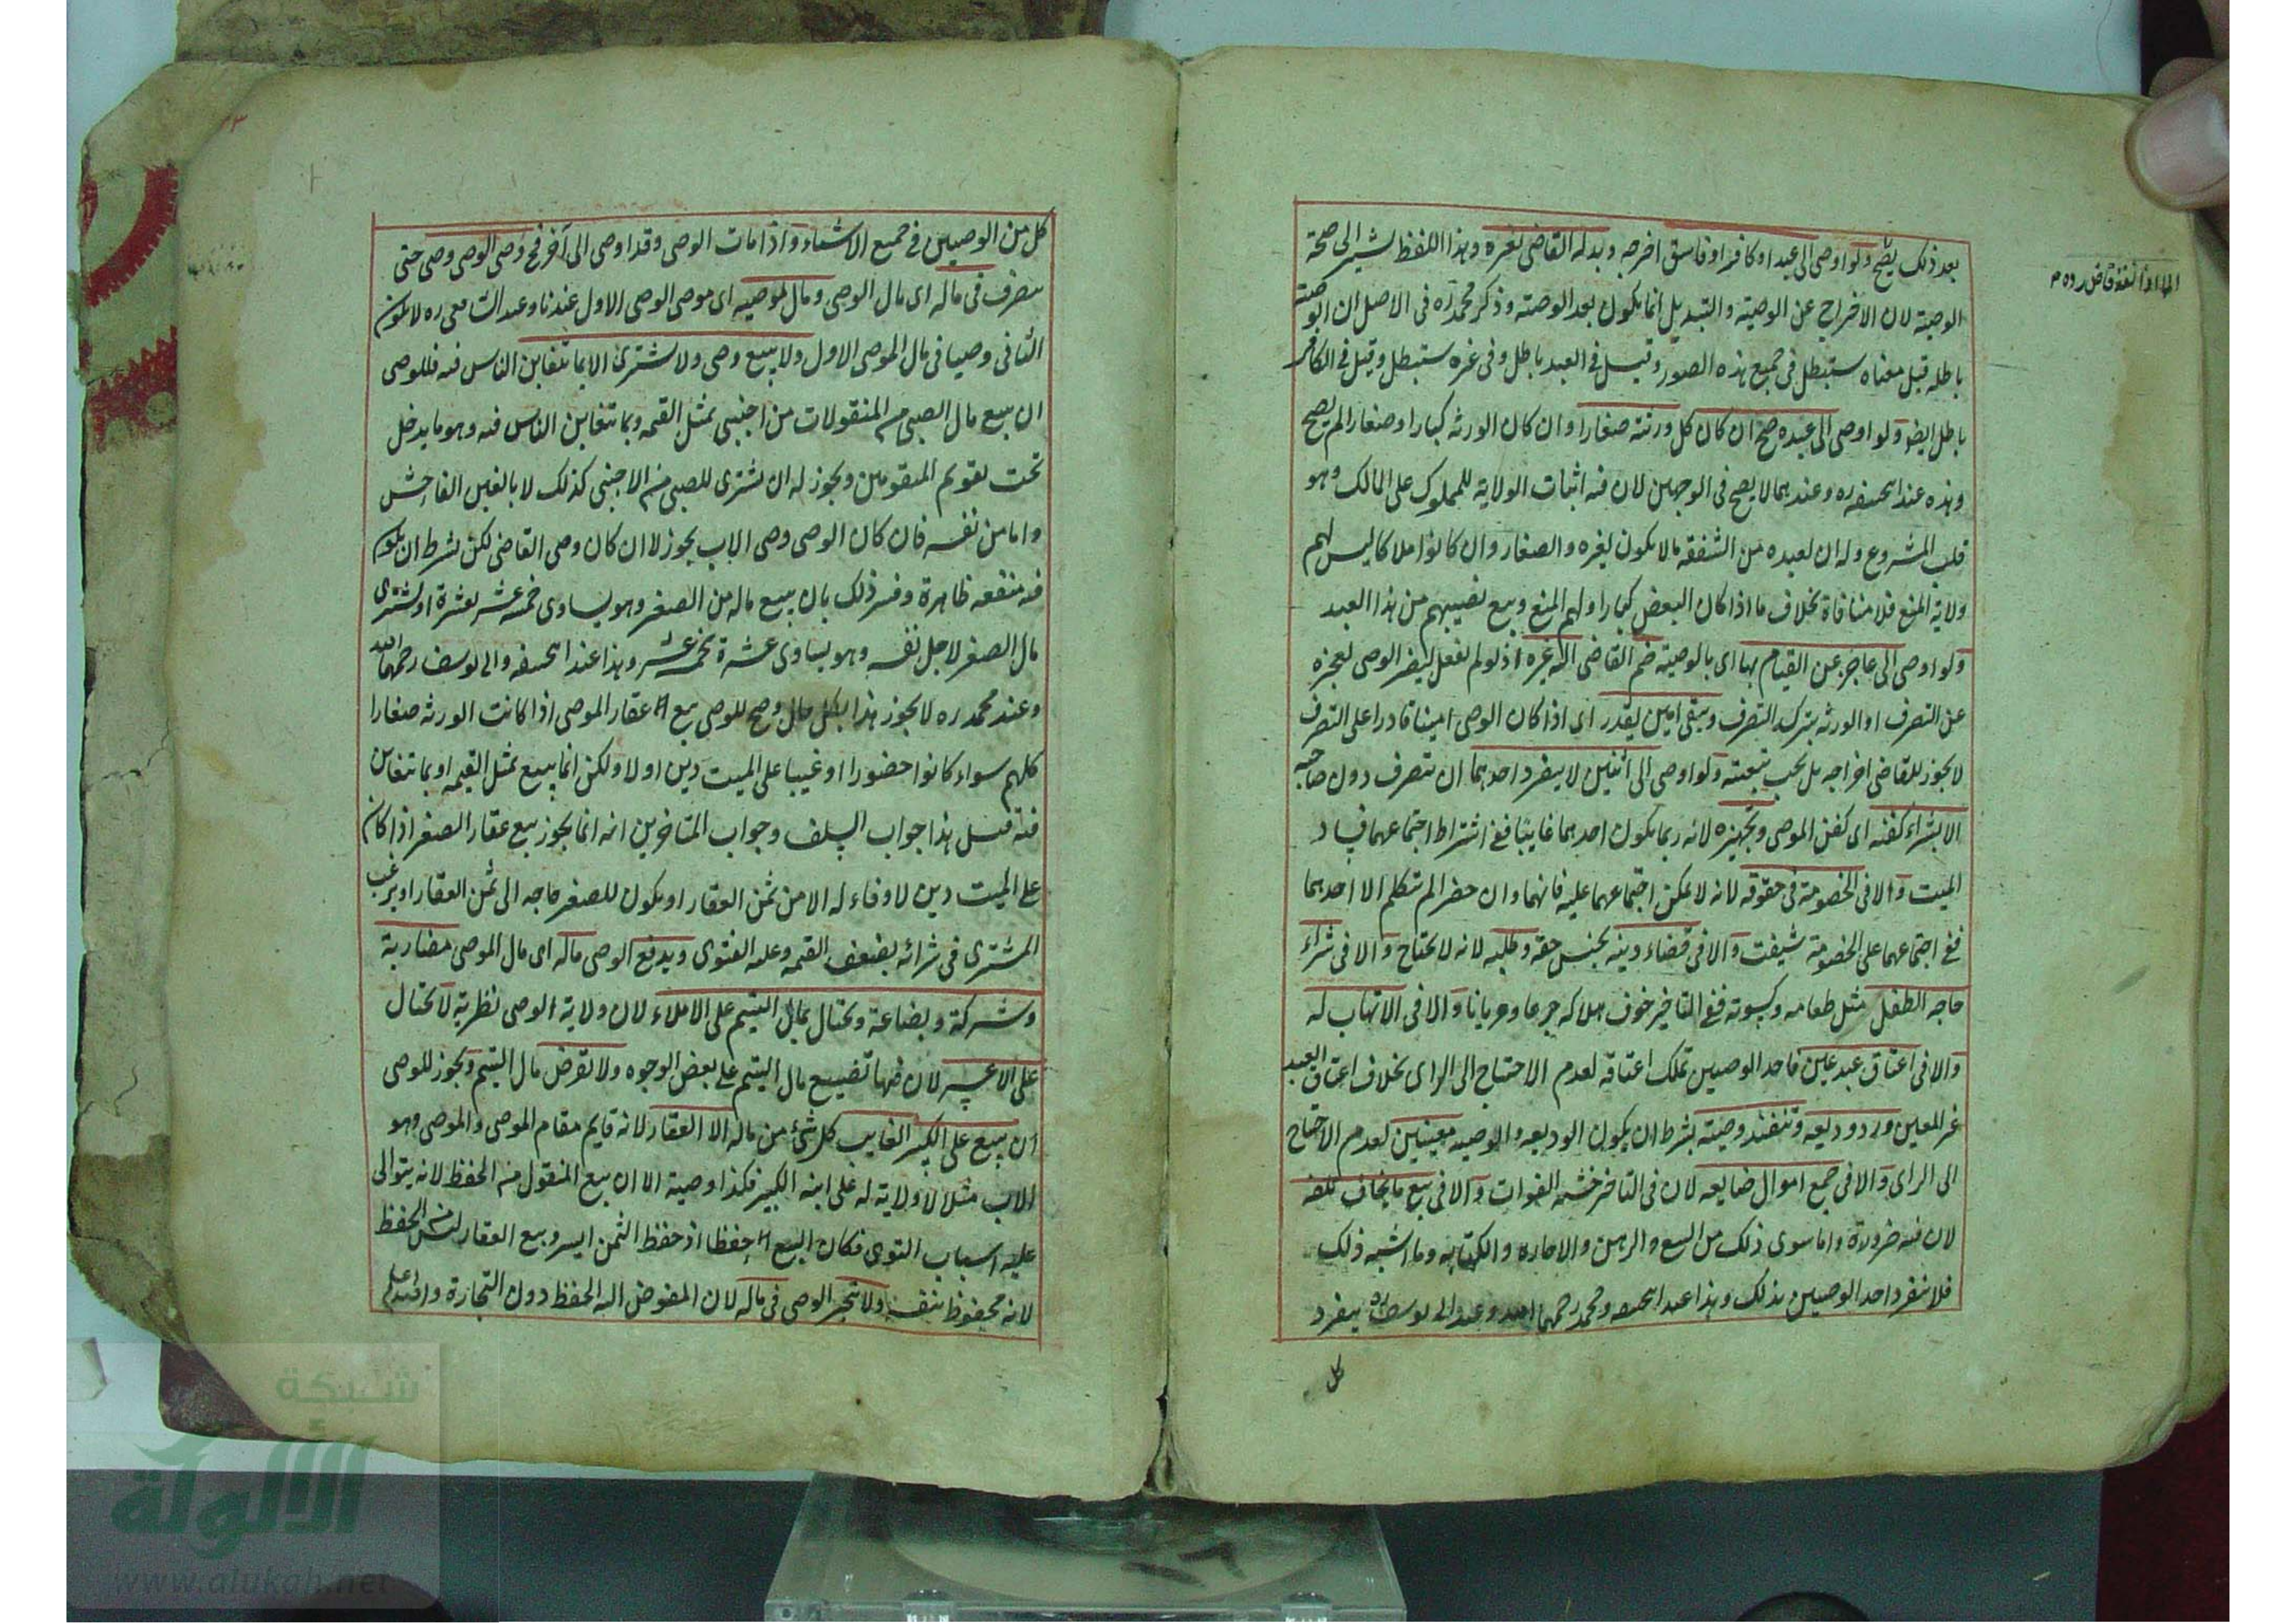 بعد ذلك يصح ولو اوصى الى عبد او كافر او فاسق اخرجه وبدله القاضى بغيره وهذا اللفظ يشير الى صحة
الوصية لان الاخراج عن الوصية والتبديل انما يكون بعد الوصية وذكر محمد ره فى الاصل ان الوصية
باطله قيل معناه ستبطل فى جميع هذه الصور وقيل فى العبد باطل وفى غيره ستبطل وقيل فى الكافر
باطل ايضا ولو اوصى الى عبده صح ان كان كل ورثته صغارا وان كان الورثه كبارا وصغارا لم يصح
وهذه عند ابيحنيفه ره وعندهما لا يصح فى الوجهين لان فيه اثبات الولايه للمملوك على المالك وهو
قلب المشروع وله ان لعبده من الشفقه مالا يكون لغيره والصغار وان كانوا ملاكا ليس لهم
ولاية المنع فلا منافاة بخلاف ما اذا كان البعض كبارا ولهم المنع وبيع نصيبهم من هذا العبد
ولو اوصى الى عاجز عن القيام بها اى بالوصية ضم القاضى اليه غيره اذ لو لم يفعل ليضر الوصى لعجزه
عن التصرف او الورثه بترك التصرف ويبقى امين يقدر اى اذا كان الوصى امينا قادرا على التصرف
لا يجوز للقاضى اخراجه بل يجب تبعيته ولو اوصى الى اثنين لا ينفرد احدهما ان يتصرف دون صاحبه
الا بشراء كفنه اى كفن الموصى وتجهيزه لانه ربما يكون احدهما غايبا ففى اشتراط اجتماعهما فساد
الميت والا فى الخصومة فى حقوقه لانه لا يمكن اجتماعهما عليه فانهما وان حضرا لم يتكلم الا احدهما
ففى اجتماعهما على الخصومة شيفت والا فى قضاء دينه بجنس حقه وطلبه لانه لا يحتاج والا فى شراء
حاجه الطفل مثل طعامه وكسوته ففى التاخير خوف هلاكه جوعا وعريانا والا فى الاتهاب له
والا فى اعتاق عبد عين فاحد الوصيين يملك اعتاقه لعدم الاحتياج الى الراى بخلاف اعتاق العبد
غير المعين ورد وديعه وتنفيذ وصيته بشرط ان يكون الوديعه والوصيه معينين لعدم الاحتياج
الى الراى والا فى جمع اموال ضايعه لان فى التاخير خشيه الفوات والا فى بيع ما يخاف تلفه
لان فيه ضرورة واما سوى ذلك من البيع والرهن والاجاره والكتابه وما اشبه ذلك
فلا ينفرد احد الوصيين بذلك وهذا عند ابيحنيفه ومحمد رحمهما الله وعند ابى يوسف ره ينفرد
كل
كل من الوصيين فى جميع الاشياء واذا مات الوصى وقد اوصى الى آخر فح وصى الوصى وصى حتى
يتصرف فى ماله اى مال الوصى ومال لموصيه اى موصى الوصى الاول عندنا وعند الشافعى ره لا يكون
الثانى وصيا فى مال الموصى الاول ولا يبيع وصى ولا يشترى الا بما يتغابن الناس فيه فللوصى
ان يبيع مال الصبى من المنقولات من اجنبى بمثل القيمه وبما يتغابن الناس فيه وهو ما يدخل
تحت تقويم المتقومين ويجوز له ان يشترى للصبى من الاجنبى كذلك لا بالغبن الفاحش
واما من نفسه فان كان الوصى وصى الاب يجوز لا ان كان وصى القاضى لكن بشرط ان يكون
فيه منفعه ظاهرة وفسر ذلك بان يبيع ماله من الصغير وهو يساوى خمسة عشر بعشرة او يشترى
مال الصغير لاجل نفسه وهو يساوى عشرة بخمسة عشر وهذا عند ابيحنيفه وابى يوسف رحمهما الله
وعند محمد ره لا يجوز هذا بكل حال وصح للوصى بيع عقار الموصى اذا كانت الورثه صغارا
كلهم سواء كانوا حضورا او غيبا على الميت دين او لا ولكن انما يبيع بمثل القيمه او بما يتغابن
فيه قيل هذا جواب السلف وجواب المتاخرين انه انما يجوز بيع عقار الصغير اذا كان
على الميت دين لا وفاء له الا من ثمن العقار او يكون للصغير حاجه الى ثمن العقار او يرغب
المشترى فى شرائه بضعف القيمه وعليه الفتوى ويدفع الوصى ماله اى مال الموصى مضاربة
وشركة وبضاعة ويحتال بمال اليتيم على الاملاء لان ولاية الوصى نظرية لا يحتال
على الاعسر لان فيها تضييع مال اليتيم على بعض الوجوه ولا يقرض مال اليتيم ويجوز للوصى
ان يبيع على الكبير الغايب كل شئ من ماله الا العقار لانه قايم مقام الموصى والموصى وهو
الاب مثلا لا ولاية له على ابنه الكبير فكذا وصية الا ان بيع المنقول من الحفظ لانه يتوالى
عليه اسباب التوى فكان البيع حفظا اذ حفظ الثمن ايسر وبيع العقار ليس من الحفظ
لانه محفوظ بنفسه ولا يتجر الوصى فى ماله لان المفوض اليه الحفظ دون التجارة
شبكة
الألوكة
www.alukah.net